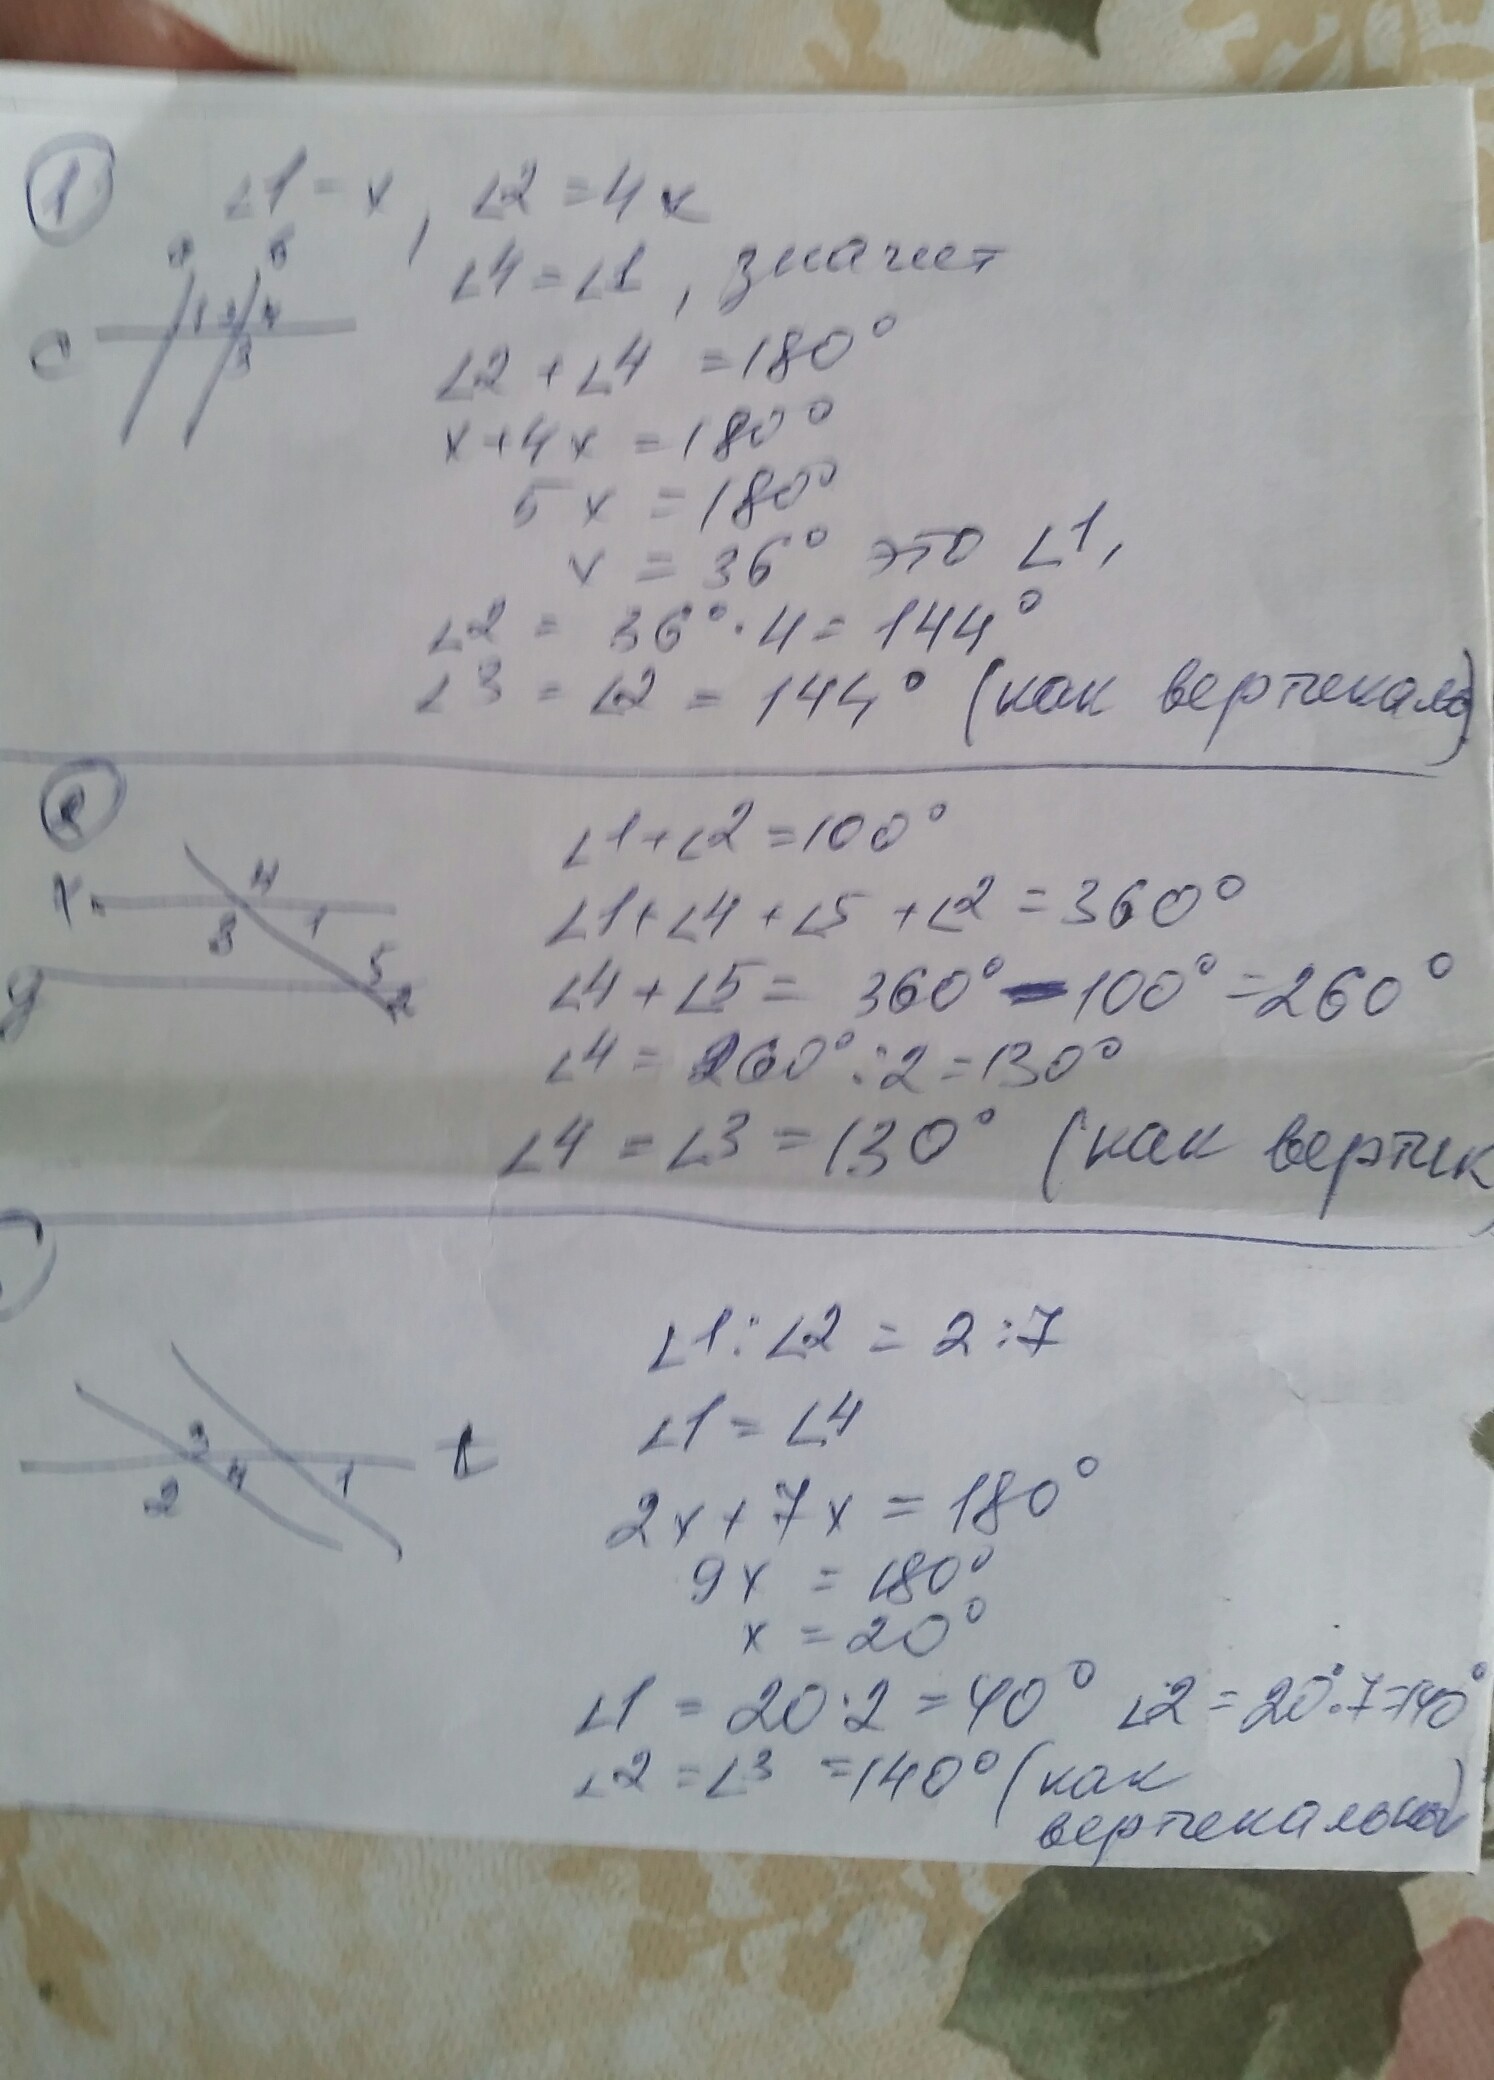 1
∠1 = x, ∠2 = 4x
∠4 = ∠1, значит
1 2 4
3
c
∠2 + ∠4 = 180°
x + 4x = 180°
5x = 180°
x = 36° это ∠1,
∠2 = 36° · 4 = 144°
∠3 = ∠2 = 144° (как вертикал)
2
∠1 + ∠2 = 100°
4
x
3 1
∠1 + ∠4 + ∠5 + ∠2 = 360°
5
y 2
∠4 + ∠5 = 360° - 100° = 260°
∠4 = 260° : 2 = 130°
∠4 = ∠3 = 130° (как вертик
∠1 : ∠2 = 2 : 7
∠1 = ∠4
3
2 4 1
t
2x + 7x = 180°
9x = 180°
x = 20°
∠1 = 20 · 2 = 40° ∠2 = 20° · 7 = 140°
∠2 = ∠3 = 140° (как
вертекальные)